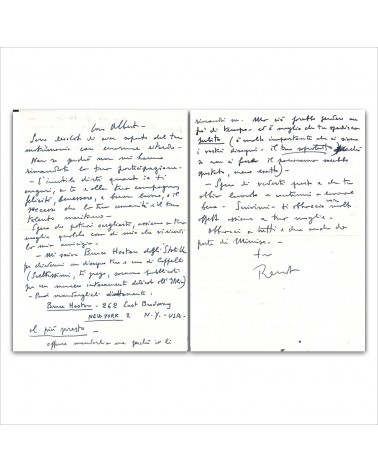 Caro Albert -
Sono desolato di aver saputo del tuo
matrimonio con enorme ritardo -
Non so perché non mi hanno
rimandato la tua partecipazione -
- È inutile dirti quanto io ti
auguri, a te e alla tua compagna
felicità, benessere, e buon lavoro, e
successo che la tua umanità e il tuo
talento meritano -
Spero che potrai scegliere, assieme a tua
moglie qualche cosa di mio che vi ricordi
la mia amicizia -
- Mi scrive Bruce Hooton degli Stati Uniti
per chiedermi un disegno tuo e uno di Cappelli
(bellissimi, ti prego, saranno pubblicati
per un numero interamente dedicato all'
- Puoi mandarglieli direttamente:
Bruce Hooton - 262 East Broadway
NEW YORK 2 N.Y. - USA -
al più presto -
oppure mandarli a me perché io li
rimandi
poi di tempo - ed è meglio che tu spedisca
subito (è molto importante che ci siano
i vostri disegni - il tuo soprattutto
- Spero di vederti presto e che tu
abbia lavorato e continui a lavorare
bene - Scrivimi - ti abbraccio con
affetto assieme a tua moglie -
Abbracci a tutti e due anche da
parte di Mimise -
tuo
Renato